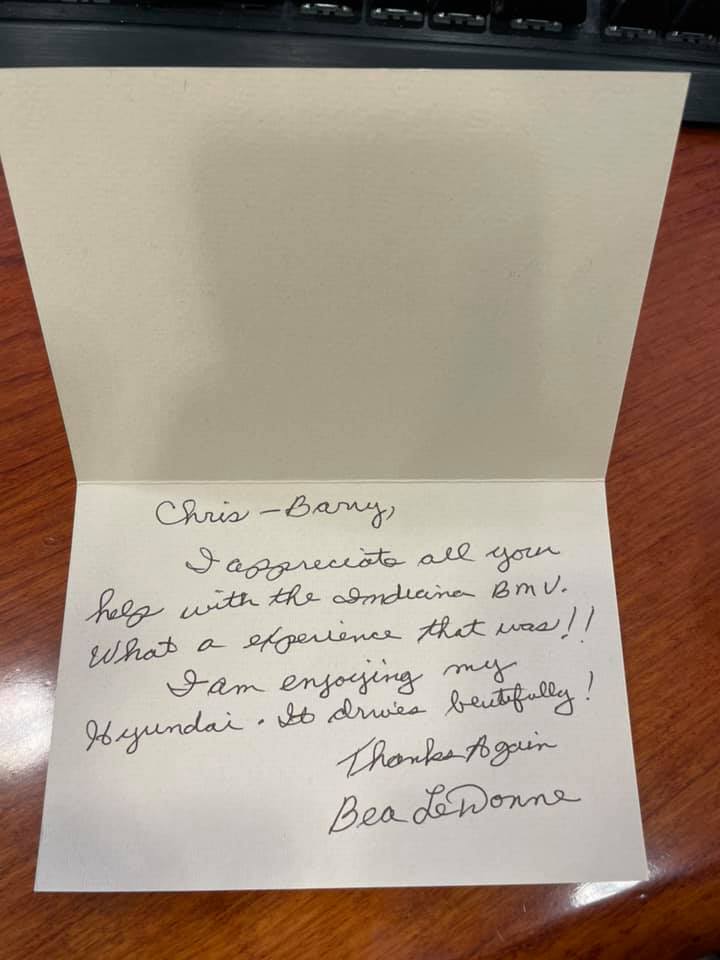 Chris - Barry,
I appreciate all your
help with the Indiana BMV.
What a experience that was!!
I am enjoying my
Hyundai. It drives beutifully!
Thanks Again
Bea LeDonne